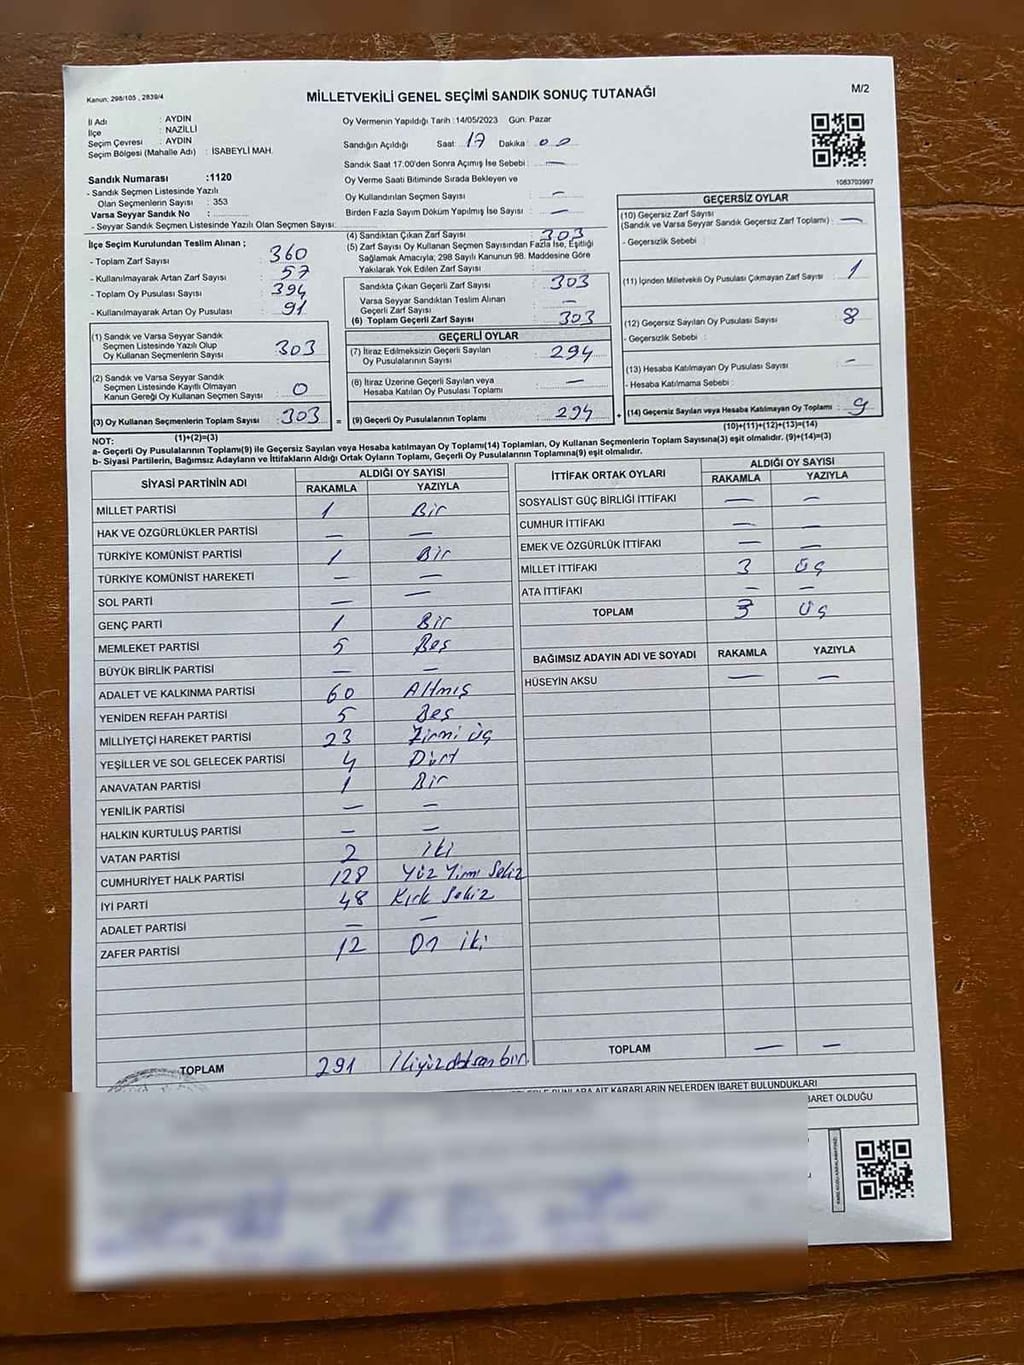 Kanun: 298/105 , 2839/4
MİLLETVEKİLİ GENEL SEÇİMİ SANDIK SONUÇ TUTANAĞI
M/2
İl Adı : AYDIN
İlçe : NAZİLLİ
Seçim Çevresi : AYDIN
Seçim Bölgesi (Mahalle Adı) : İSABEYLİ MAH.
Sandık Numarası :1120
- Sandık Seçmen Listesinde Yazılı
Olan Seçmenlerin Sayısı : 353
Varsa Seyyar Sandık No :
- Seyyar Sandık Seçmen Listesinde Yazılı Olan Seçmen Sayısı:
Oy Vermenin Yapıldığı Tarih :14/05/2023 Gün: Pazar
Sandığın Açıldığı Saat: 17 Dakika: 00
Sandık Saat 17.00'den Sonra Açımış İse Sebebi : —
Oy Verme Saati Bitiminde Sırada Bekleyen ve
Oy Kullandırılan Seçmen Sayısı : —
Birden Fazla Sayım Döküm Yapılmış İse Sayısı : —
1063703997
İlçe Seçim Kurulundan Teslim Alınan ;
- Toplam Zarf Sayısı : 360
- Kullanılmayarak Artan Zarf Sayısı : 57
- Toplam Oy Pusulası Sayısı : 394
- Kullanılmayarak Artan Oy Pusulası : 91
(1) Sandık ve Varsa Seyyar Sandık
Seçmen Listesinde Yazılı Olup
Oy Kullanan Seçmenlerin Sayısı : 303
(2) Sandık ve Varsa Seyyar Sandık
Seçmen Listesinde Kayıtlı Olmayan
Kanun Gereği Oy Kullanan Seçmen Sayısı : 0
(3) Oy Kullanan Seçmenlerin Toplam Sayısı : 303
(1)+(2)=(3)
(4) Sandıktan Çıkan Zarf Sayısı : 303
(5) Zarf Sayısı Oy Kullanan Seçmen Sayısından Fazla İse, Eşitliği
Sağlamak Amacıyla; 298 Sayılı Kanunun 98. Maddesine Göre
Yakılarak Yok Edilen Zarf Sayısı :
Sandıkta Çıkan Geçerli Zarf Sayısı : 303
Varsa Seyyar Sandıktan Teslim Alınan
Geçerli Zarf Sayısı : —
(6) Toplam Geçerli Zarf Sayısı : 303
GEÇERLİ OYLAR
(7) İtiraz Edilmeksizin Geçerli Sayılan
Oy Pusulalarının Sayısı : 294
(8) İtiraz Üzerine Geçerli Sayılan veya
Hesaba Katılan Oy Pusulası Toplamı : —
= (9) Geçerli Oy Pusulalarının Toplamı : 294
GEÇERSİZ OYLAR
(10) Geçersiz Zarf Sayısı
(Sandık ve Varsa Seyyar Sandık Geçersiz Zarf Toplamı) : —
- Geçersizlik Sebebi :
(11) İçinden Milletvekili Oy Pusulası Çıkmayan Zarf Sayısı : 1
(12) Geçersiz Sayılan Oy Pusulası Sayısı : 8
- Geçersizlik Sebebi :
(13) Hesaba Katılmayan Oy Pusulası Sayısı : —
- Hesaba Katılmama Sebebi :
+ (14) Geçersiz Sayılan veya Hesaba Katılmayan Oy Toplamı : 9
(10)+(11)+(12)+(13)=(14)
NOT:
a- Geçerli Oy Pusulalarının Toplamı(9) ile Geçersiz Sayılan veya Hesaba katılmayan Oy Toplamı(14) Toplamları, Oy Kullanan Seçmenlerin Toplam Sayısına(3) eşit olmalıdır. (9)+(14)=(3)
b- Siyasi Partilerin, Bağımsız Adayların ve İttifakların Aldığı Ortak Oyların Toplamı, Geçerli Oy Pusulalarının Toplamına(9) eşit olmalıdır.
SİYASİ PARTİNİN ADI ALDIĞI OY SAYISI
RAKAMLA YAZIYLA
MİLLET PARTİSİ 1 Bir
HAK VE ÖZGÜRLÜKLER PARTİSİ — —
TÜRKİYE KOMÜNİST PARTİSİ 1 Bir
TÜRKİYE KOMÜNİST HAREKETİ — —
SOL PARTİ — —
GENÇ PARTİ 1 Bir
MEMLEKET PARTİSİ 5 Beş
BÜYÜK BİRLİK PARTİSİ — —
ADALET VE KALKINMA PARTİSİ 60 Altmış
YENİDEN REFAH PARTİSİ 5 Beş
MİLLİYETÇİ HAREKET PARTİSİ 23 Yirmi üç
YEŞİLLER VE SOL GELECEK PARTİSİ 4 Dört
ANAVATAN PARTİSİ 1 Bir
YENİLİK PARTİSİ — —
HALKIN KURTULUŞ PARTİSİ — —
VATAN PARTİSİ 2 iki
CUMHURİYET HALK PARTİSİ 128 Yüz Yirmi Sekiz
İYİ PARTİ 48 Kırk Sekiz
ADALET PARTİSİ — —
ZAFER PARTİSİ 12 On iki
TOPLAM 291 İkiyüzdoksanbir
İTTİFAK ORTAK OYLARI ALDIĞI OY SAYISI
RAKAMLA YAZIYLA
SOSYALİST GÜÇ BİRLİĞİ İTTİFAKI — —
CUMHUR İTTİFAKI — —
EMEK VE ÖZGÜRLÜK İTTİFAKI — —
MİLLET İTTİFAKI 3 üç
ATA İTTİFAKI — —
TOPLAM 3 üç
BAĞIMSIZ ADAYIN ADI VE SOYADI RAKAMLA YAZIYLA
HÜSEYİN AKSU — —
TOPLAM — —
BUNLARA AİT KARARLARIN NELERDEN İBARET BULUNDUKLARI
İBARET OLDUĞU